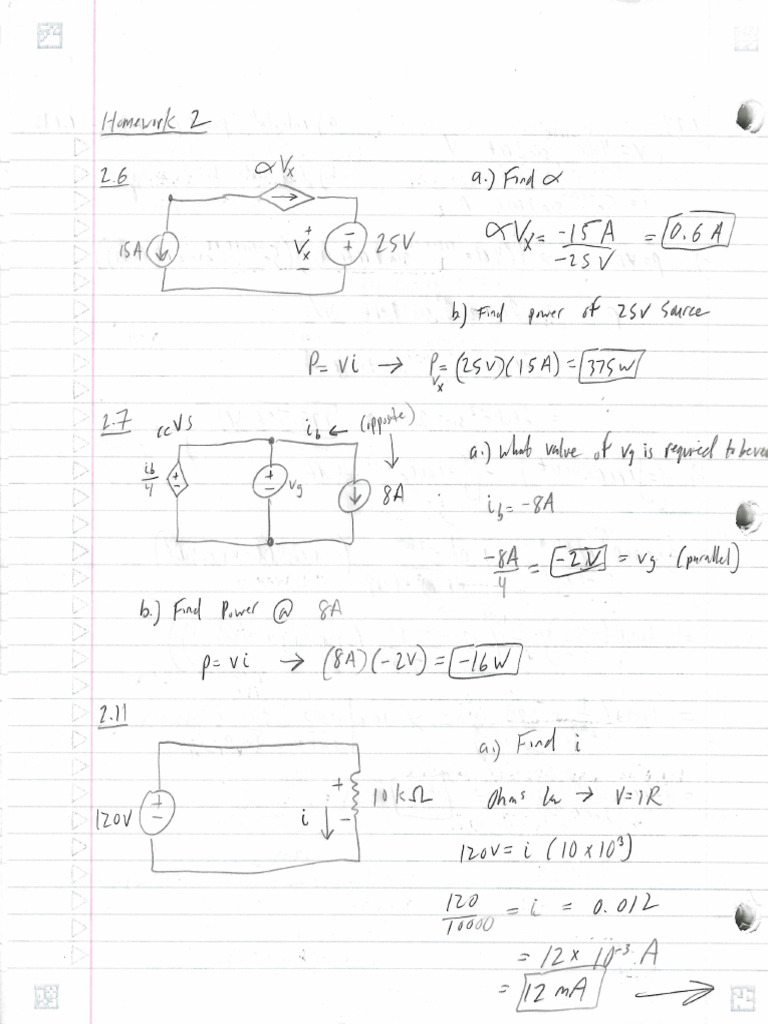 Homework 2
2.6
αVx
a.) Find α
15A
+
Vx
−
−
+
25V
αVx = -15 A / -25 V = 0.6 A
b.) Find power of 25V source
P = vi → P_Vx = (25V)(15A) = 375 W
2.7
ccVS
ib ← (opposite)
a.) what value of vg is required to
ib/4
+
−
+
−
vg
8A
ib = -8A
-8A/4 = -2V = vg (parallel)
b.) Find Power @ 8A
p = vi → (8A)(-2V) = -16W
2.11
a.) Find i
120V
+
−
+
−
i
10 kΩ
Ohms → V=iR
120V = i (10 x 10³)
120/10000 = i = 0.012
= 12 x 10⁻³ A
= 12 mA →